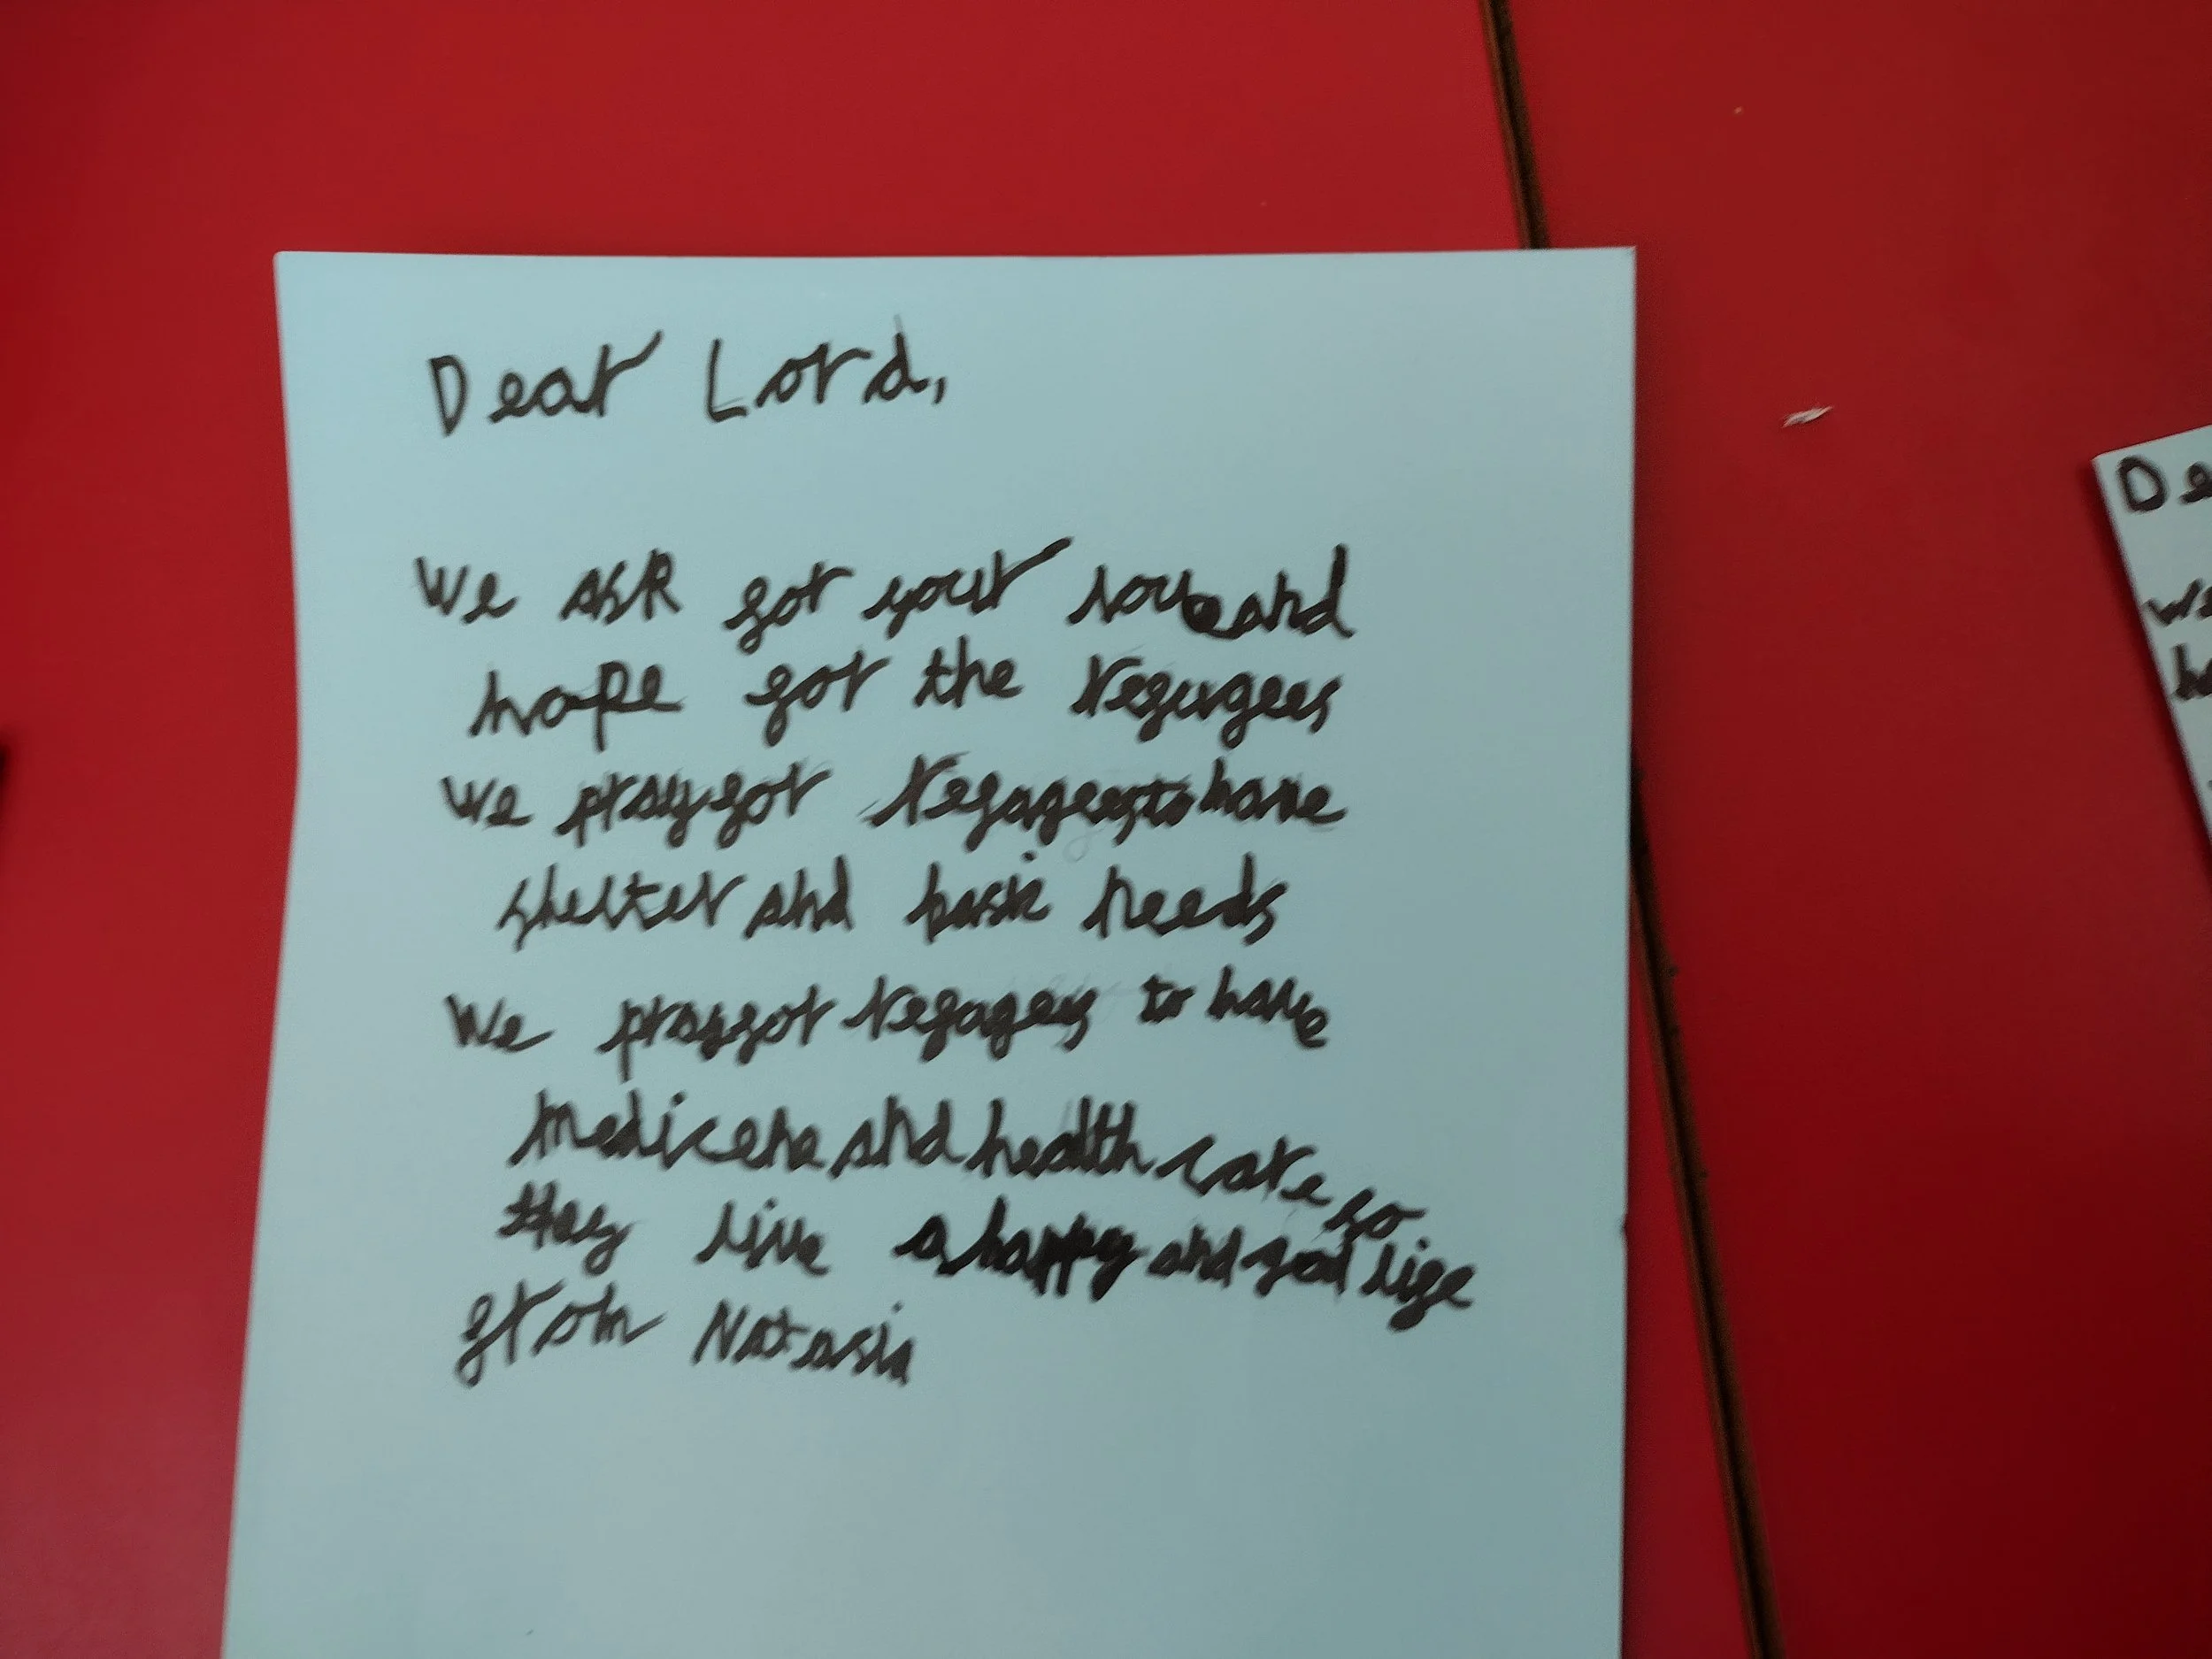 Dear Lord,
We ask for your love and
hope for the refugees
We pray for refagees to have
shelter and basic needs
We pray for refagees to have
medicene and health care so
they live a happy and good life
from Natasia
De
we
ho